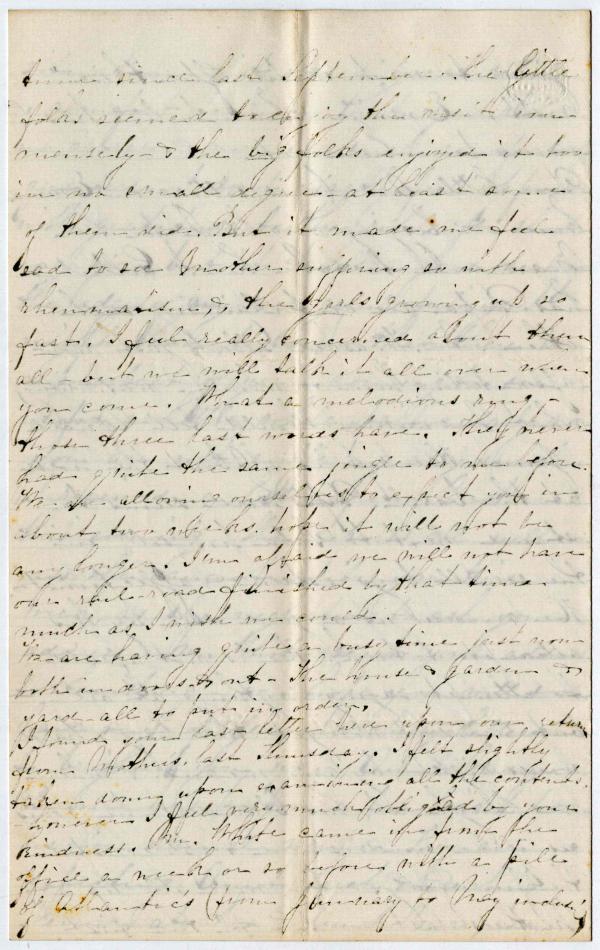 time since last September. The little
folks seemed to enjoy the visit im
mensely - & the big folks enjoyed it too
in no small degree - at least some
of them did. But it made me feel
sad to see Mother suffering so with
rheumatism, & the girls growing up so
fast. I feel really concerned about them
all - but we will talk it all over when
you come. What a melodious ring -
those three last words have. They never
had quite the same jingle to me before.
We are allowing ourselves to expect you in
about two weeks. hope it will not be
any longer. I'm afraid we will not have
our rail-road finished by that time
much as I wish we could.
We are having quite a busy time just now
both in doors & out - The house & garden &
yard - all to put in order.
I found your last letter here upon our return
from Mothers, last Thursday. I felt slightly
taken down upon examining all the contents.
- however I feel very much obliged by your
kindness. Mr. White came in from the
office a week or so before with a pile
of Atlantic's (from January to May inclusi